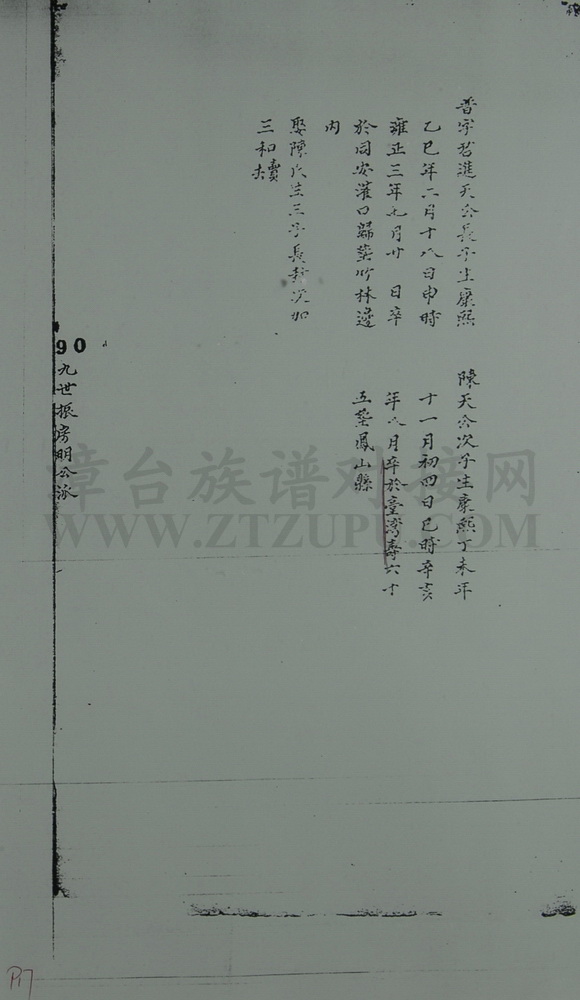 普字君進天公長子生康熙
乙巳年二月十八日申時
雍正三年九月廿 日卒
於同安灌口歸葬竹林邊
内
娶陳氏生三子長 次加
三和賣
陳天公次子生康熙丁未年
十一月初四日巳時卒亥
年八月卒於臺灣壽六十
五葬鳳山縣
90
九世振房明公派
漳台族谱对接网
WWW.ZTZUPU.COM
P17